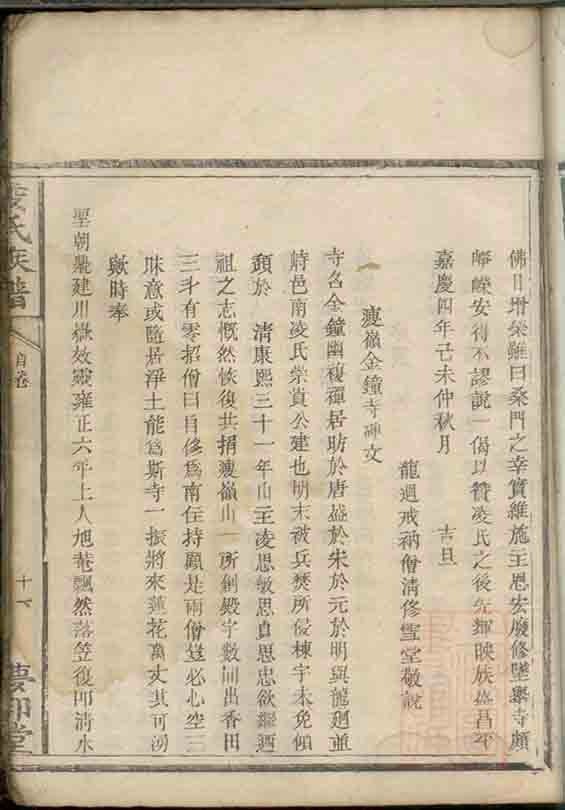 佛日增榮雖曰桑門之幸實維施主恩宏廢修墜舉寺顏
崢嶸安得不謬說一偈以贊凌氏之後先輝映族益昌乎
嘉慶四年己未仲秋月 吉旦
龍廻戒衲僧清修雪堂敬說
瘦嶺金鐘寺碑文
寺名金鐘幽複禪居昉於唐盛於宋於元於明與龍廻並
峙邑南凌氏崇貴公建也明末被兵焚所侵棟宇未免傾
頹於 清康熙三十一年山主凌思敏思貞思忠欲繼廼
祖之志慨然恢復共捐瘦嶺山一所創殿宇數間出香田
三斗有零招僧曰自修爲南住持願是兩僧並必心空三
昧意或隨居淨土能爲斯寺一振將來蓮花萬丈其可湧
歟時奉
聖朝肇建川嶽效靈雍正六年上人旭菴飄然落笠復卽清水
凌氏族譜
首卷
十
夢卿堂